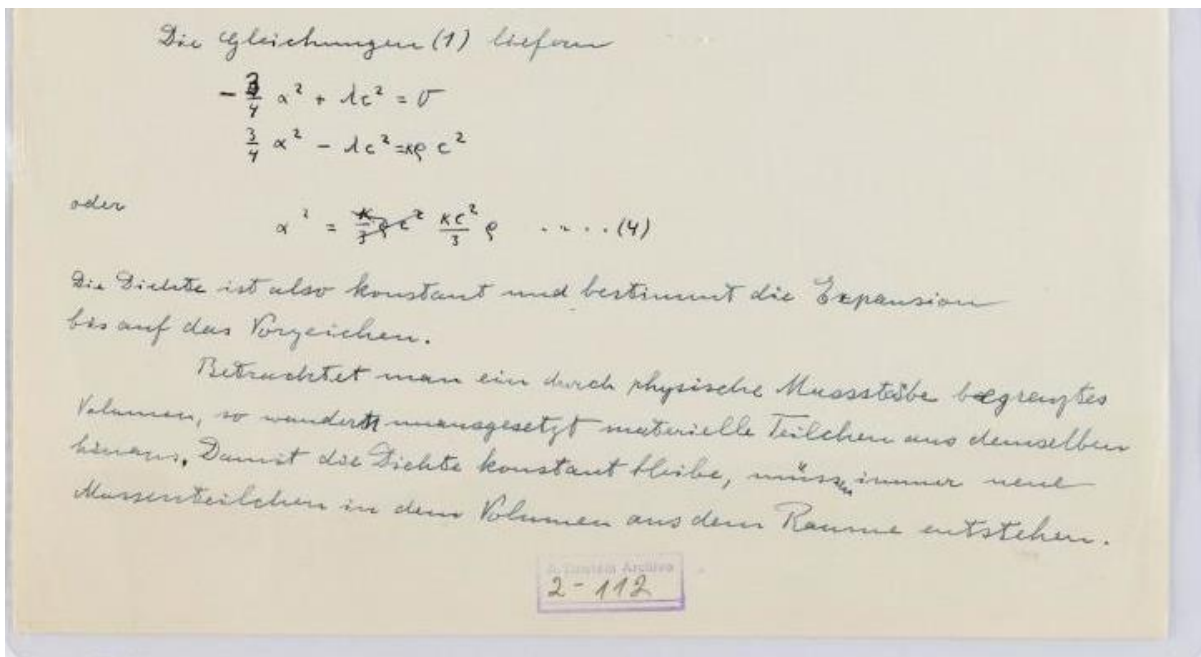 Die Gleichungen (1) liefern
- 3/4 α² + λc² = 0
3/4 α² - λc² = κρ c²
oder
α² = κ/3 ρ c² κc²/3 ρ . . . . (4)
Die Dichte ist also konstant und bestimmt die Expansion
bis auf das Vorzeichen.
Betrachtet man ein durch physische Massstäbe begrenztes
Volumen, so wandern unausgesetzt materielle Teilchen aus demselben
hinaus. Damit die Dichte konstant bleibe, müssen immer neue
Massenteilchen in dem Volumen aus dem Raume entstehen.
Archive
2-112